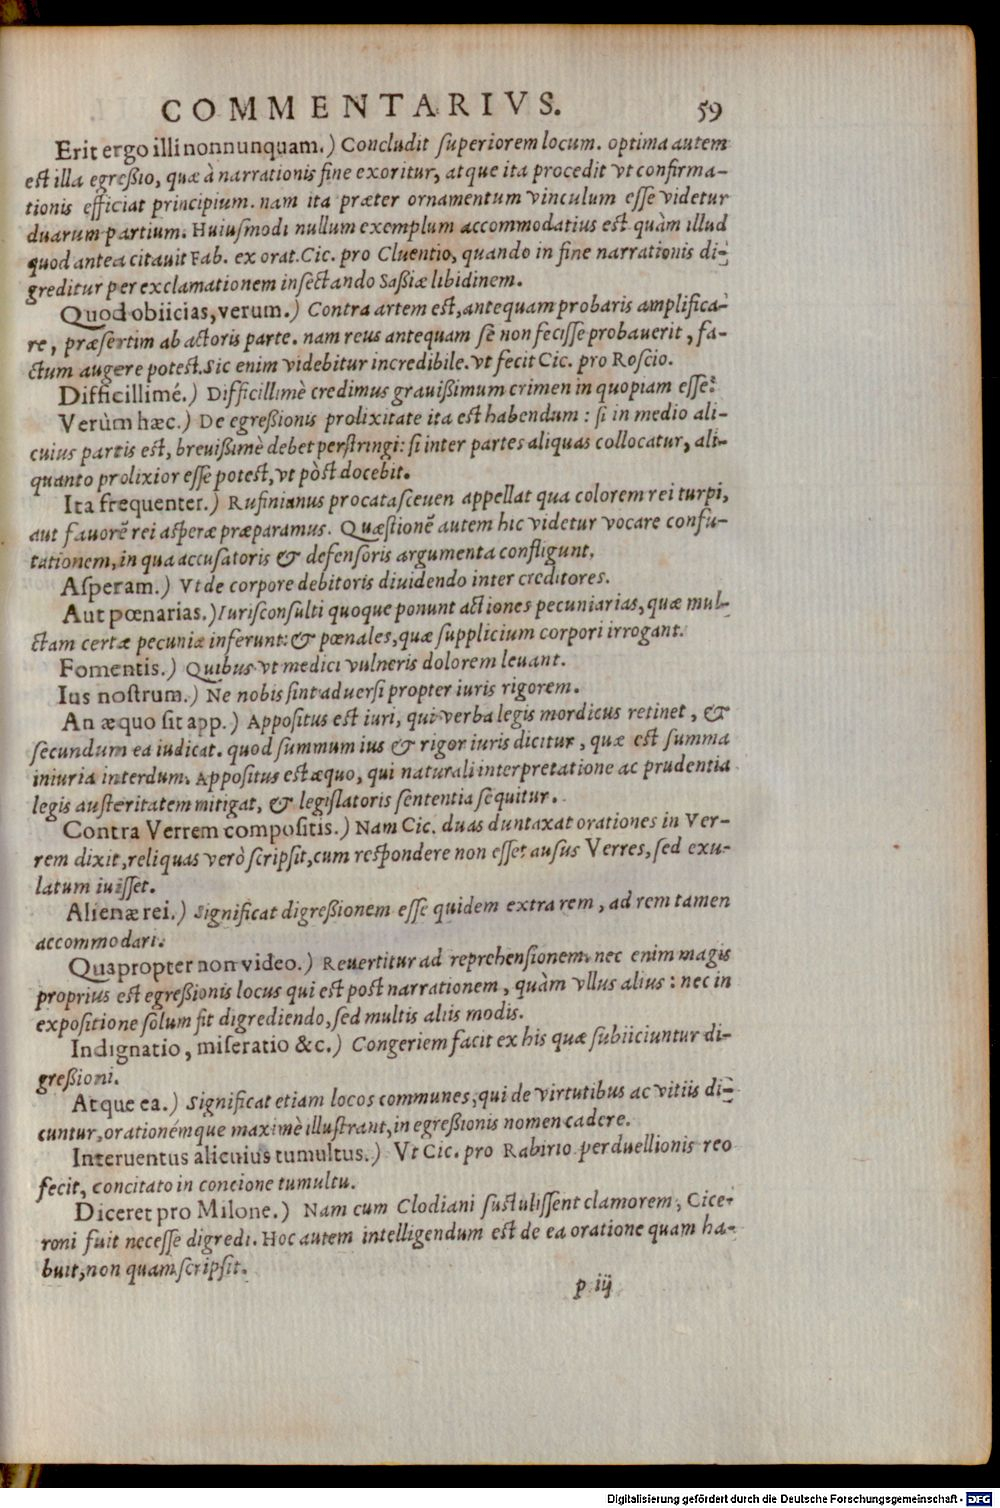 COMMENTARIVS. 59
Erit ergo illi nonnunquam.) Concludit superiorem locum. optima autem
est illa egreßio, quæ à narrationis fine exoritur, atque ita procedit vt confirma-
tionis efficiat principium. nam ita præter ornamentum vinculum esse videtur
duarum partium. Huiusmodi nullum exemplum accommodatius est quàm illud
quod antea citauit Fab. ex orat. Cic. pro Cluentio, quando in fine narrationis di-
greditur per exclamationem insectando Saßiæ libidinem.
Quod obiicias, verum.) Contra artem est, antequam probaris amplifica-
re, præsertim ab actoris parte. nam reus antequam se non fecisse probauerit, fa-
ctum augere potest. Sic enim videbitur incredibile. vt fecit Cic. pro Roscio.
Difficillimé.) Difficillimè credimus grauißimum crimen in quopiam esse.
Verùm hæc.) De egreßionis prolixitate ita est habendum: si in medio ali-
cuius partis est, breuißimè debet perstringi: si inter partes aliquas collocatur, ali-
quanto prolixior esse potest, vt pòst docebit.
Ita frequenter.) Rufinianus procatasceuen appellat qua colorem rei turpi,
aut fauorē rei asperæ præparamus. Quæstionē autem hic videtur vocare confu-
tationem, in qua accusatoris & defensoris argumenta confligunt.
Asperam.) Vt de corpore debitoris diuidendo inter creditores.
Aut pœnarias.) Iurisconsulti quoque ponunt actiones pecuniarias, quæ mul-
ctam certæ pecuniæ inferunt: & pœnales, quæ supplicium corpori irrogant.
Fomentis.) Quibus vt medici vulneris dolorem leuant.
Ius nostrum.) Ne nobis sint aduersi propter iuris rigorem.
An æquo sit app.) Appositus est iuri, qui verba legis mordicus retinet, &
secundum ea iudicat. quod summum ius & rigor iuris dicitur, quæ est summa
iniuria interdum. Appositus est æquo, qui naturali interpretatione ac prudentia
legis austeritatem mitigat, & legislatoris sententia sequitur.
Contra Verrem compositis.) Nam Cic. duas duntaxat orationes in Ver-
rem dixit, reliquas verò scripsit, cum respondere non esset ausus Verres, sed exu-
latum iuisset.
Alienæ rei.) Significat digreßionem esse quidem extra rem, ad rem tamen
accommodari.
Quapropter non video.) Reuertitur ad reprehensionem. nec enim magis
proprius est egreßionis locus qui est post narrationem, quàm vllus alius: nec in
expositione solum fit digrediendo, sed multis aliis modis.
Indignatio, miseratio &c.) Congeriem facit ex his quæ subiiciuntur di-
greßioni.
Atque ea.) Significat etiam locos communes, qui de virtutibus ac vitiis di-
cuntur, orationémque maximè illustrant, in egreßionis nomen cadere.
Interuentus alicuius tumultus.) Vt Cic. pro Rabirio perduellionis reo
fecit, concitato in concione tumultu.
Diceret pro Milone.) Nam cum Clodiani sustulissent clamorem, Cice-
roni fuit necesse digredi. Hoc autem intelligendum est de ea oratione quam ha-
buit, non quam scripsit.
p iij
Digitalisierung gefördert durch die Deutsche Forschungsgemeinschaft - DFG